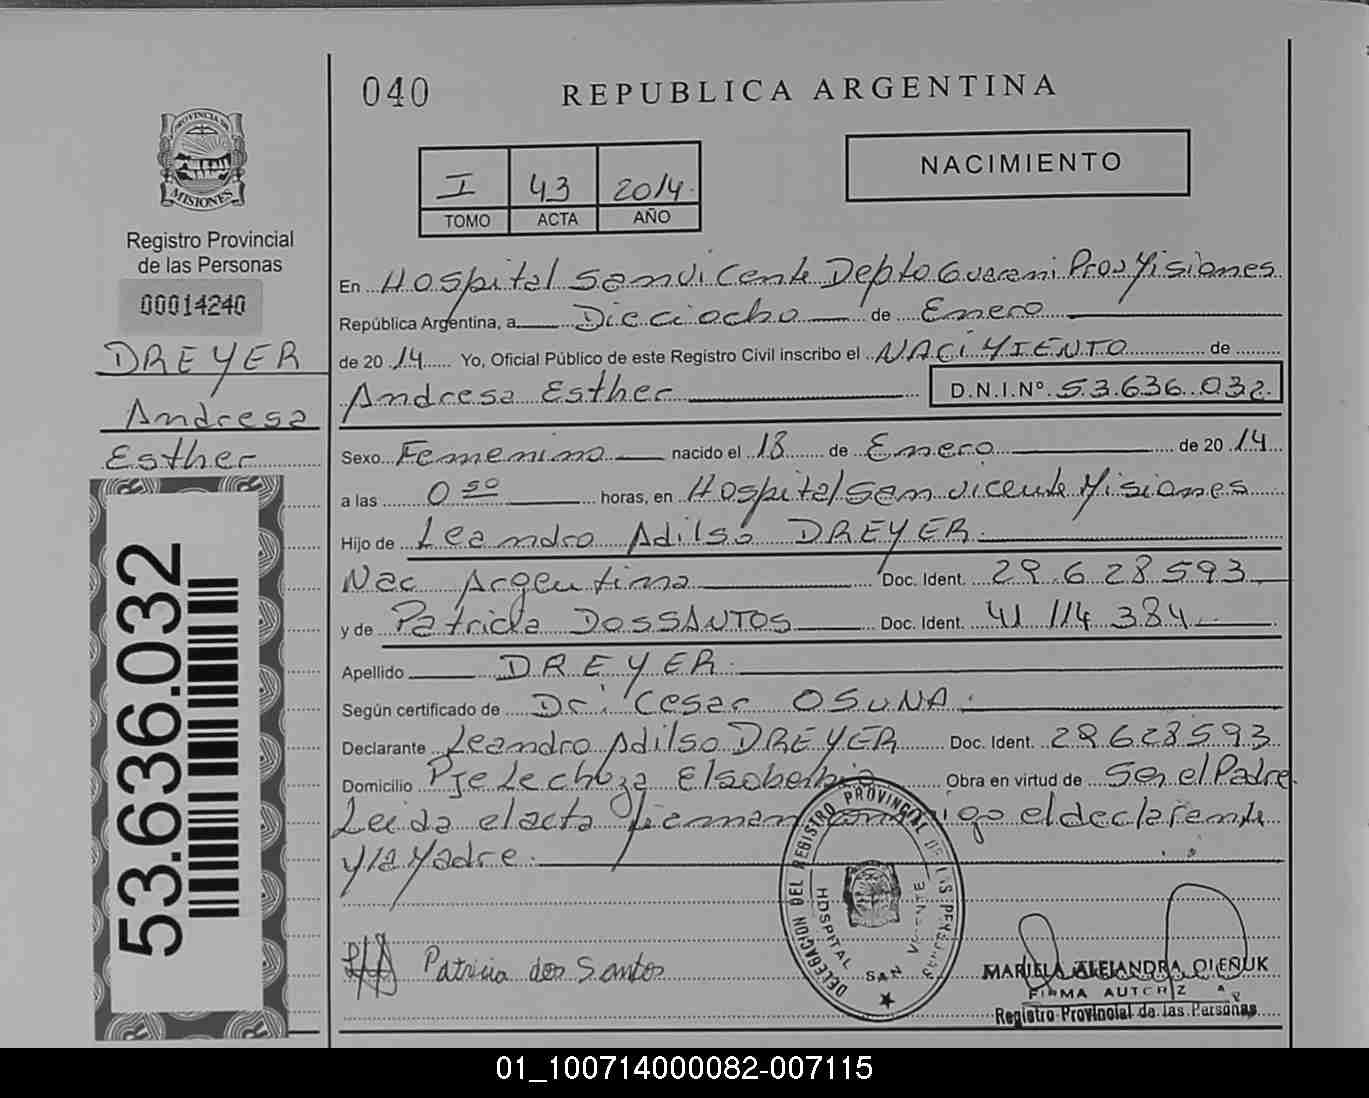 040
REPUBLICA ARGENTINA
PROVINCIA DE
MISIONES
Registro Provincial
de las Personas
00014240
DREYER
Andresa
Esther
53.636.032
I 43 2014
TOMO ACTA AÑO
NACIMIENTO
En Hospital San Vicente Depto Guarani Prov Misiones
República Argentina, a Dieciocho de Enero
de 20 14 Yo, Oficial Público de este Registro Civil inscribo el NACIMIENTO de
Andresa Esther D.N.I.Nº 53.636.032
Sexo Femenino nacido el 18 de Enero de 20 14
a las 0 50 horas, en Hospital San Vicente Misiones
Hijo de Leandro Adilso DREYER
Nac Argentina Doc. Ident. 29.628593
y de Patricia DOSSANTOS Doc. Ident. 41 114 384
Apellido DREYER
Según certificado de Dr. Cesar OSUNA
Declarante Leandro Adilso DREYER Doc. Ident. 29628593
Domicilio Pje Lechuza El soberbio Obra en virtud de Ser el Padre
Leida el acta firman conmigo el declarante
y la Madre
DELEGACION DEL REGISTRO PROVINCIAL DE LAS PERSONAS
HOSPITAL SAN VICENTE
Patricia dos Santos
MARIELA ALEJANDRA OLEÑUK
FIRMA AUTORIZ
Registro Provincial de las Personas
01_100714000082-007115